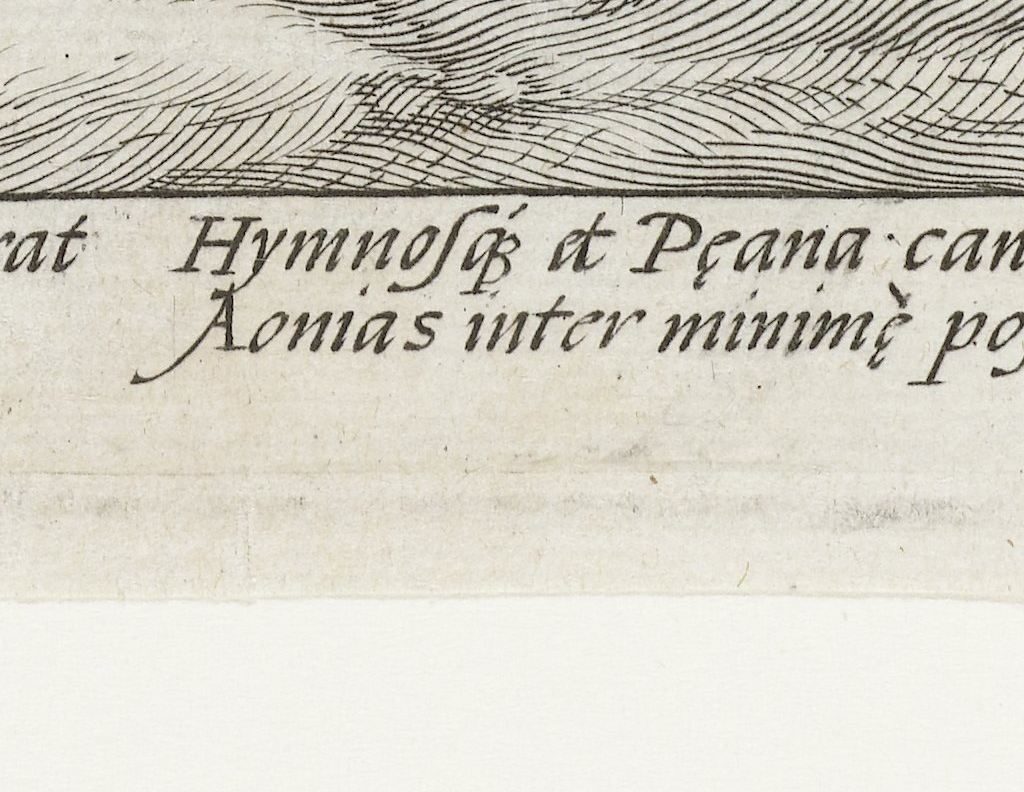 rat Hymnosq́; et Pęana can
Aonias inter minimę̀ pos